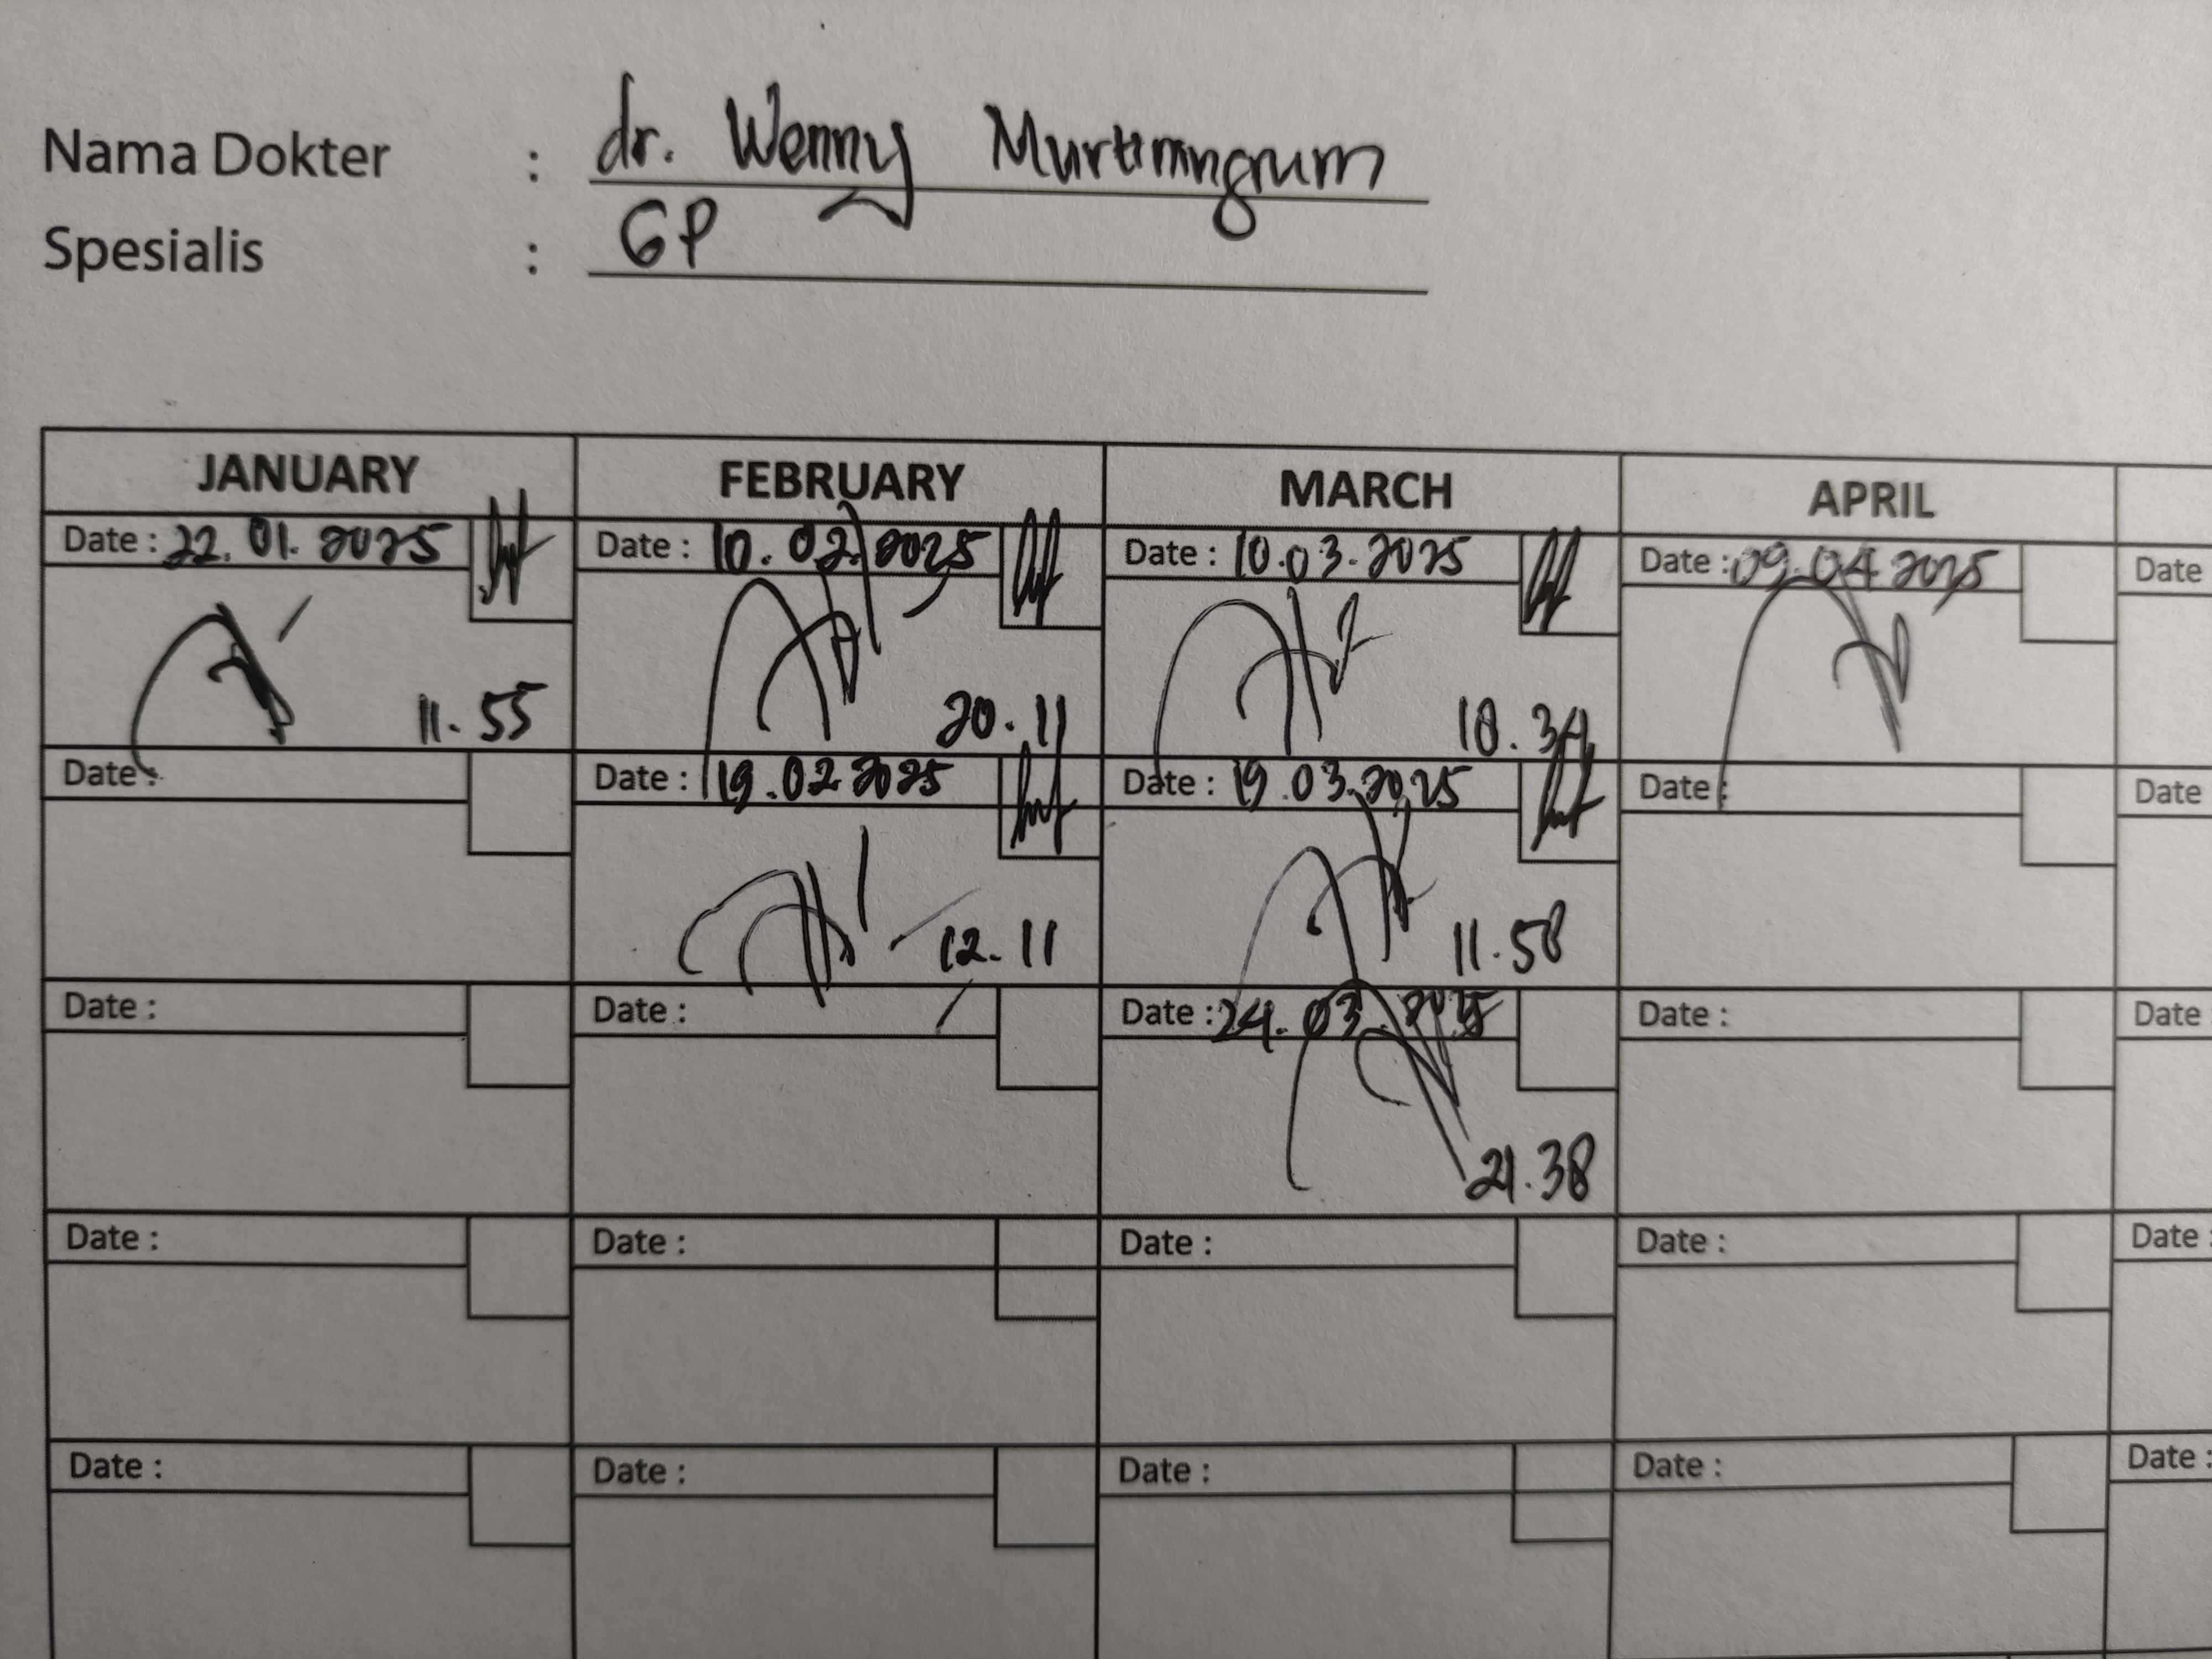 Nama Dokter : dr. Wenny Murtiningrum
Spesialis : GP
JANUARY FEBRUARY MARCH APRIL
Date : 22.01.2025 Date : 10.02.2025 Date : 10.03.2025 Date : 09.04.2025 Date
11.55 20.11 18.34
Date : Date : 19.02.2025 Date : 19.03.2025 Date : Date
12.11 11.58
Date : Date : Date : 24.03.2025 Date : Date
21.38
Date : Date : Date : Date : Date :
Date : Date : Date : Date : Date :